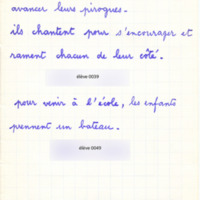 avancer leurs pirogues.
ils chantent pour s'encourager et
rament chacun de leur côté.
élève 0039
pour venir à l'école, les enfants
prennent un bateau.
élève 0049